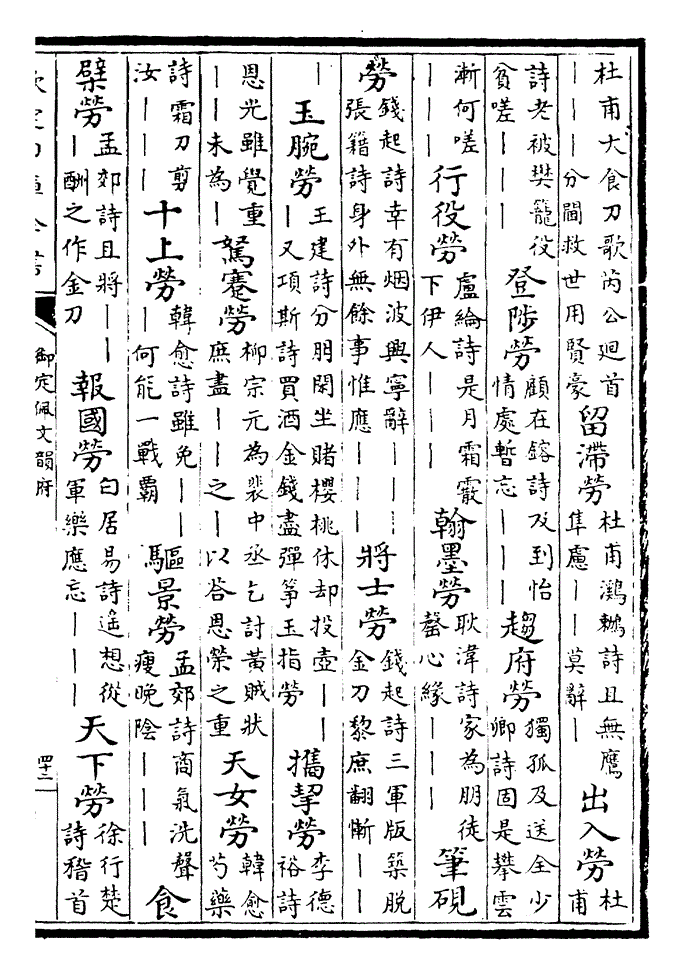 杜甫大食刀歌芮公廻首｜｜｜分閫救世用賢豪 留滯勞 杜甫鸂鶒詩且無鷹隼慮｜｜莫辭｜ 出入勞 杜甫
詩老被樊籠役貧嗟｜｜｜ 登陟勞 顧在鎔詩及到怡情處暫忘｜｜｜ 趨府勞 獨孤及送全少卿詩固是攀雲
漸何嗟｜｜｜ 行役勞 盧綸詩是月霜霰下伊人｜｜｜ 翰墨勞 耿湋詩家為朋徒罄心緣｜｜｜ 筆硯
勞 錢起詩幸有烟波興寧辭｜｜｜張籍詩身外無餘事惟應｜｜｜ 將士勞 錢起詩三軍版築脫金刀黎庶翻慚｜｜
｜ 玉腕勞 王建詩分朋閑坐賭櫻桃休却投壺｜｜｜又項斯詩買酒金錢盡彈箏玉指勞 攜挈勞 李德裕詩
恩光雖覺重｜｜未為｜ 駑蹇勞 柳宗元為裴中丞乞討黃賊狀庶盡｜｜之｜以答恩榮之重 天女勞 韓愈芍藥
詩霜刀剪汝｜｜｜ 十上勞 韓愈詩雖免｜｜｜何能一戰覇 驅景勞 孟郊詩商氣洗聲瘦晚陰｜｜｜ 食
檗勞 孟郊詩且將｜｜｜酬之作金刀 報國勞 白居易詩遙想從軍樂應忘｜｜｜ 天下勞 徐行楚詩稽首
御定佩文韻府 四十二